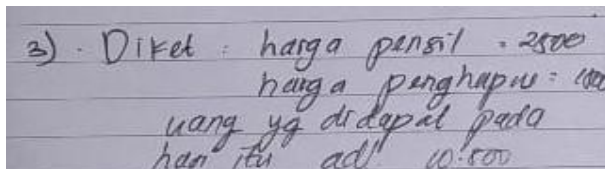 3). Diket : harga pensil = 2500
harga penghapus =
uang yg didapat pada
hari itu ad' 10.500